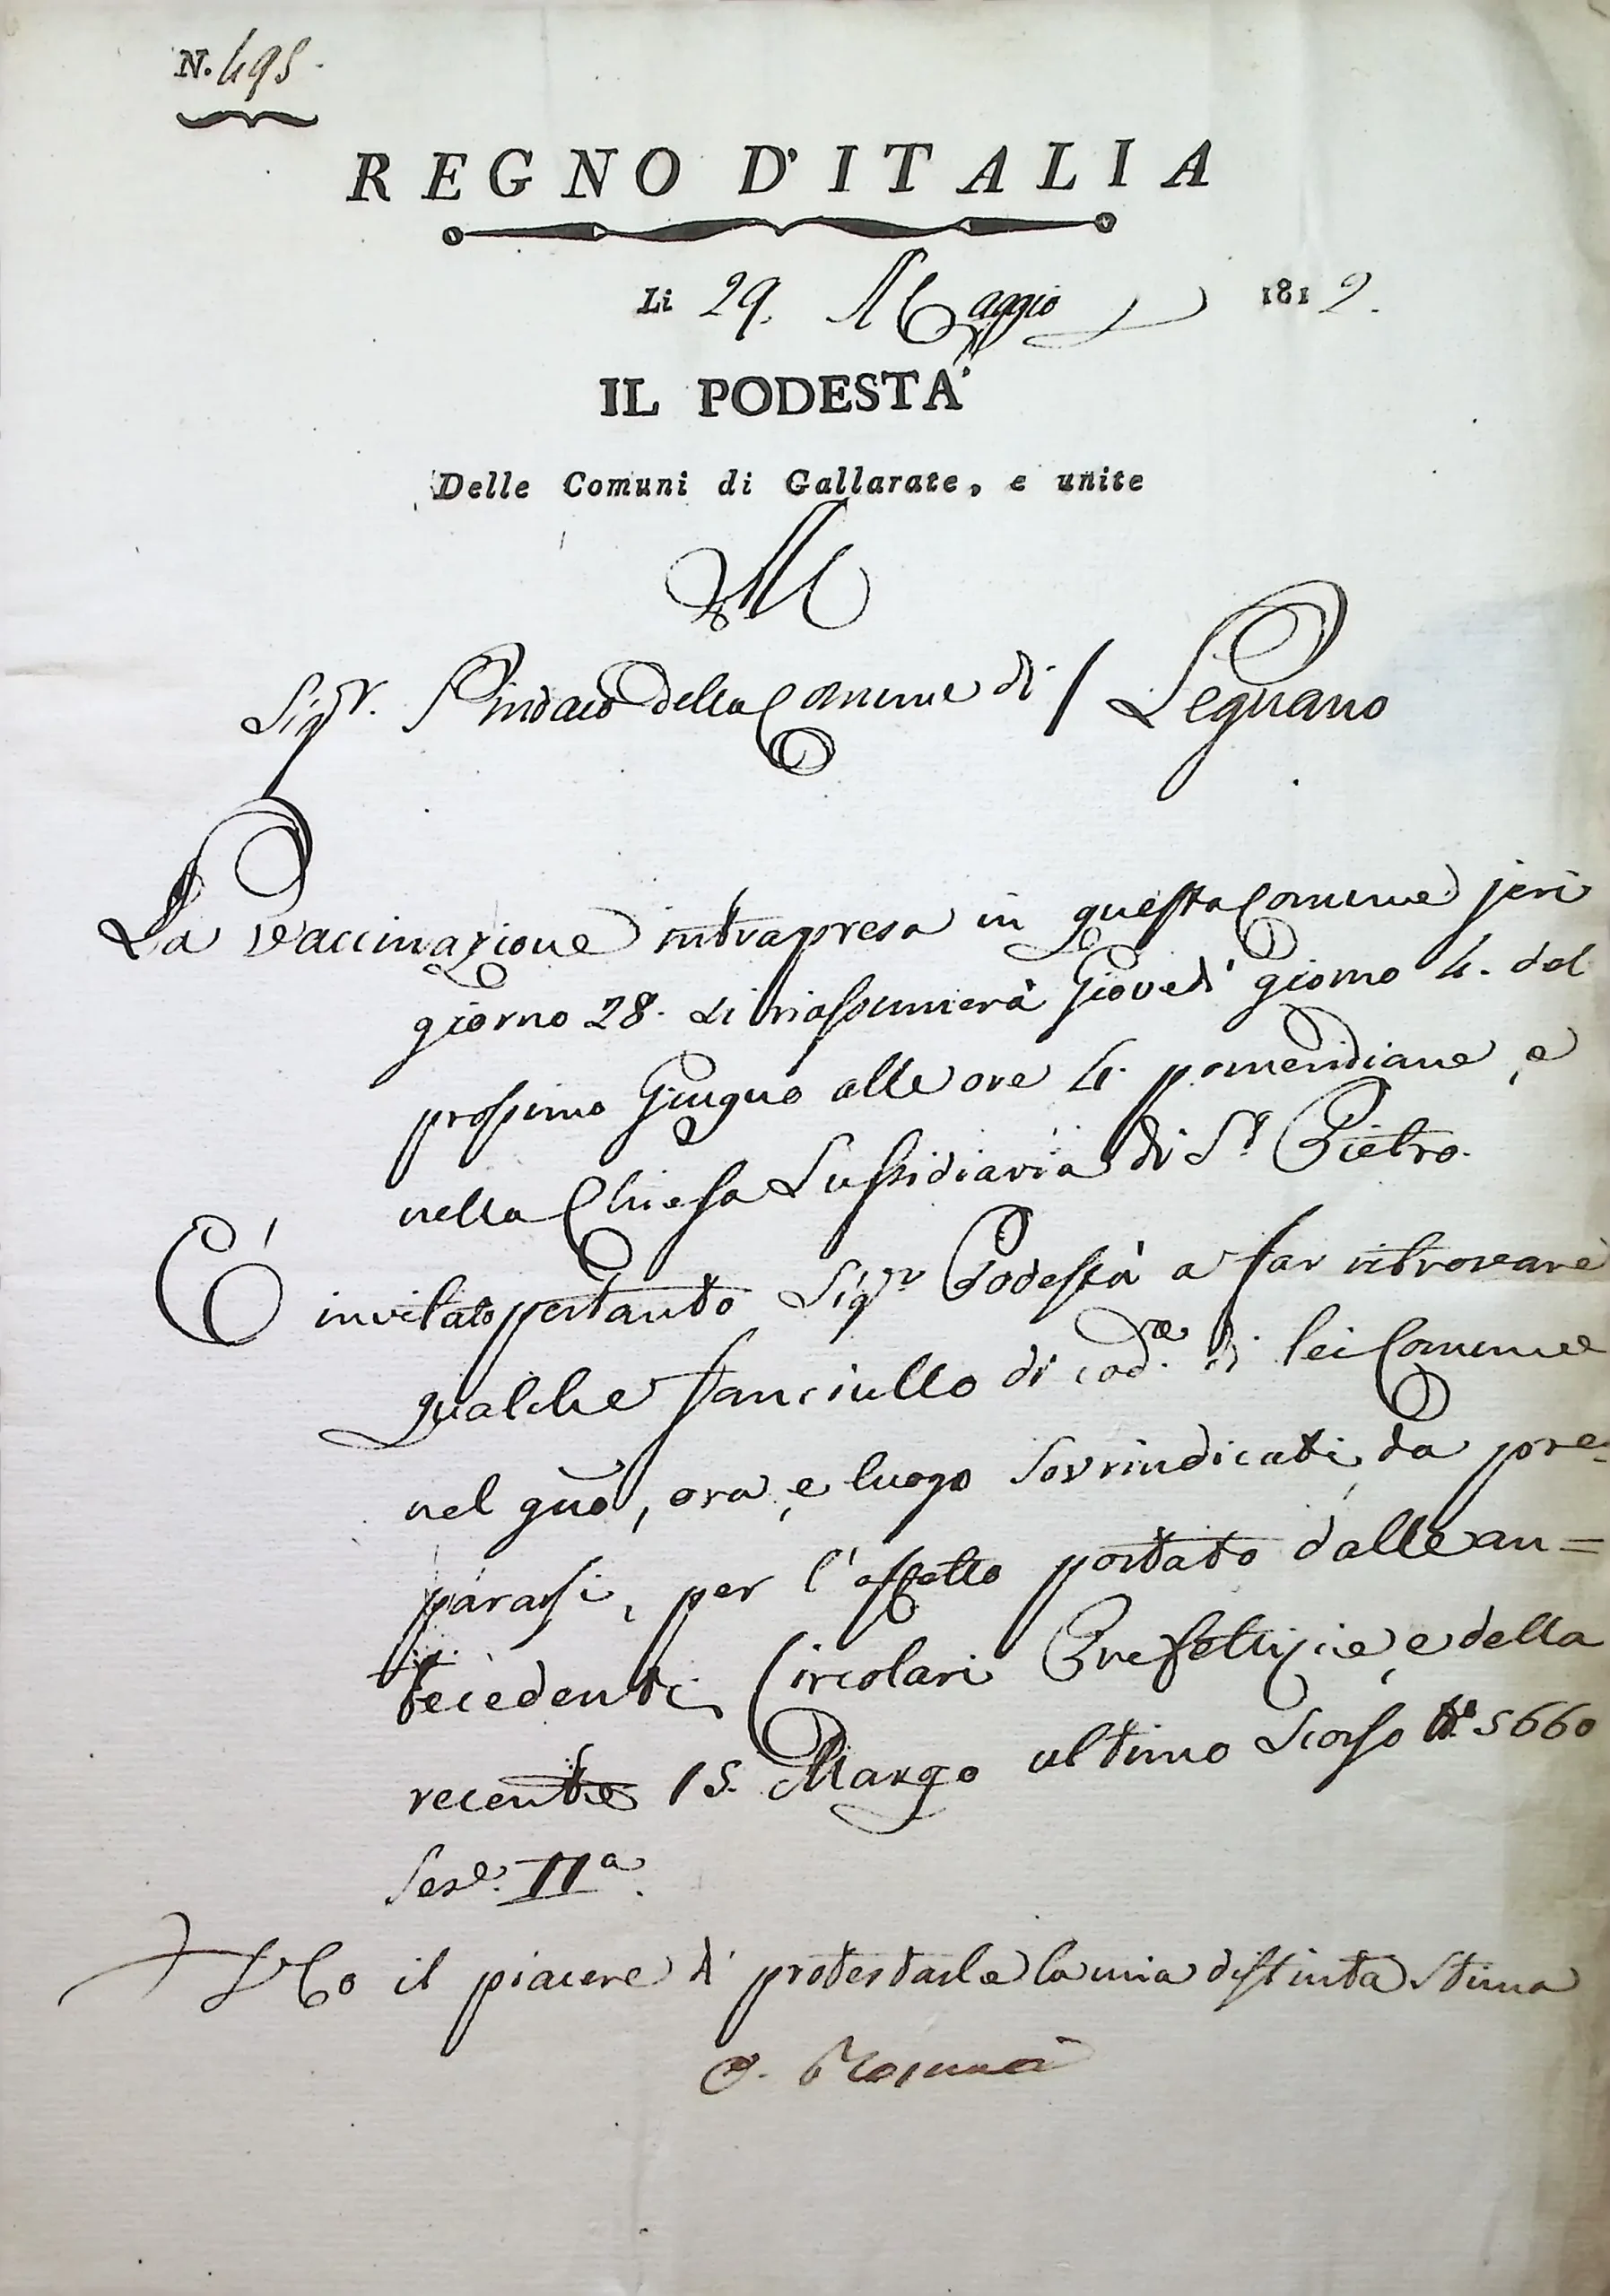 N. 495.
REGNO D'ITALIA
Li 29. Maggio 1812.
IL PODESTA'
Delle Comuni di Gallarate, e unite
Al
Sigr. Sindaco della Comune di / Legnano
La Vaccinazione intrapresa in questa Comune jeri
giorno 28. si riassumerà Giovedì giorno 4. del
prossimo Giugno alle ore 4. pomeridiane, e
nella Chiesa Sussidiaria di Sn Pietro.
È invitato pertanto Sigr Podestà a far ritrovare
qualche fanciullo di cod.a di lei Comune
nel gno, ora, e luogo sovrindicati, da pre=
pararsi, per l'effetto portato dalle an=
tecedenti Circolari Prefettizie, e della
recente 15. Marzo ultimo scorso N.° 5660
Seze. IIa.
Ho il piacere di protestarle la mia distinta stima